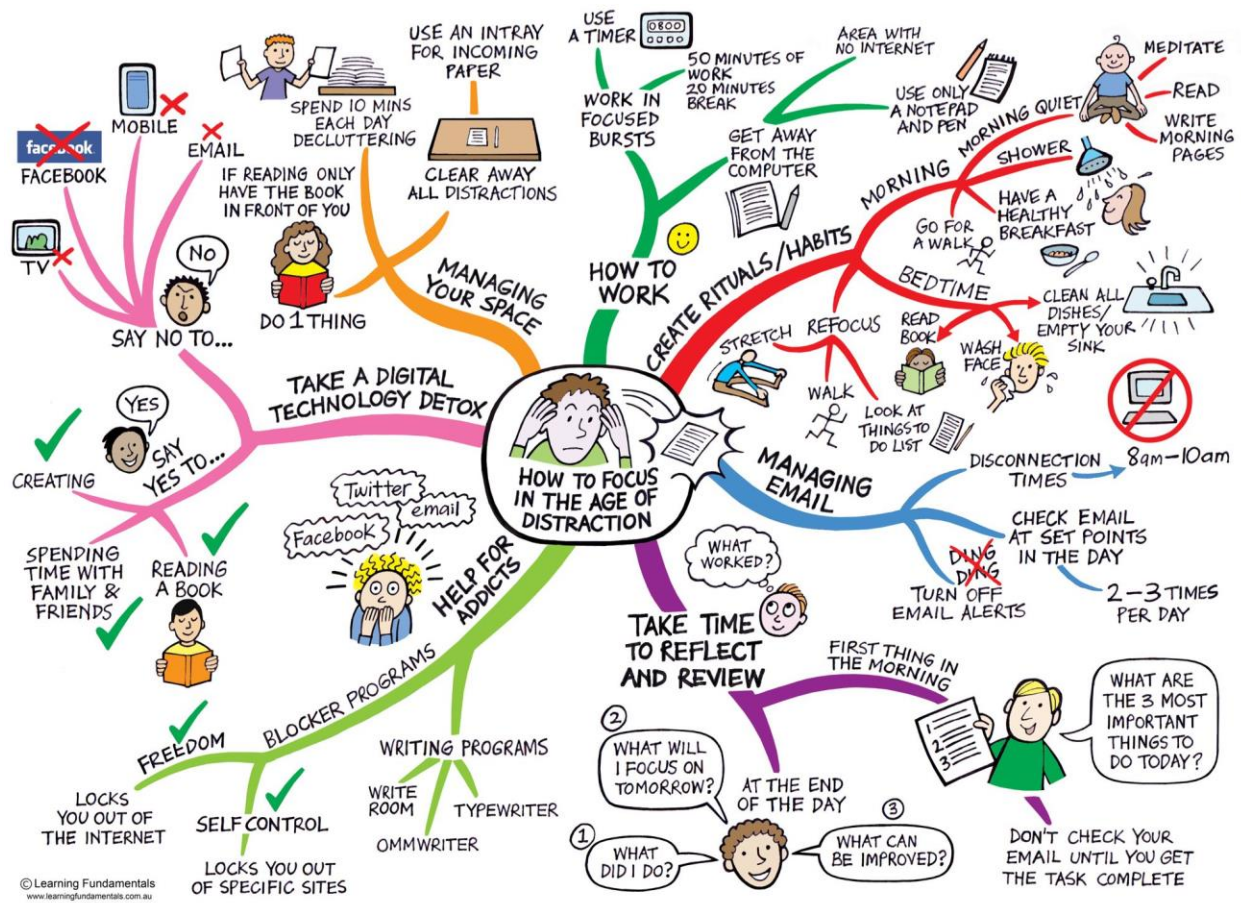 HOW TO FOCUS
IN THE AGE OF
DISTRACTION
MANAGING
YOUR SPACE
SPEND 10 MINS
EACH DAY
DECLUTTERING
USE AN INTRAY
FOR INCOMING
PAPER
CLEAR AWAY
ALL DISTRACTIONS
IF READING ONLY
HAVE THE BOOK
IN FRONT OF YOU
DO 1 THING
HOW TO
WORK
WORK IN
FOCUSED
BURSTS
USE
A TIMER
0800
50 MINUTES OF
WORK
20 MINUTES
BREAK
GET AWAY
FROM THE
COMPUTER
AREA WITH
NO INTERNET
USE ONLY
A NOTEPAD
AND PEN
CREATE RITUALS/HABITS
MORNING
MORNING QUIET
MEDITATE
READ
WRITE
MORNING
PAGES
SHOWER
HAVE A
HEALTHY
BREAKFAST
GO FOR
A WALK
BEDTIME
CLEAN ALL
DISHES/
EMPTY YOUR
SINK
READ
BOOK
WASH
FACE
REFOCUS
STRETCH
WALK
LOOK AT
THINGS TO
DO LIST
MANAGING
EMAIL
DISCONNECTION
TIMES
8am-10am
CHECK EMAIL
AT SET POINTS
IN THE DAY
2-3 TIMES
PER DAY
DING
DING
TURN OFF
EMAIL ALERTS
TAKE TIME
TO REFLECT
AND REVIEW
WHAT
WORKED?
FIRST THING IN
THE MORNING
1
2
3
WHAT ARE
THE 3 MOST
IMPORTANT
THINGS TO
DO TODAY?
DON'T CHECK YOUR
EMAIL UNTIL YOU GET
THE TASK COMPLETE
AT THE END
OF THE DAY
1
WHAT
DID I DO?
2
WHAT WILL
I FOCUS ON
TOMORROW?
3
WHAT CAN
BE IMPROVED?
HELP FOR
ADDICTS
Twitter
email
Facebook
BLOCKER PROGRAMS
FREEDOM
LOCKS
YOU OUT OF
THE INTERNET
SELF CONTROL
LOCKS YOU OUT
OF SPECIFIC SITES
WRITING PROGRAMS
WRITE
ROOM
OMMWRITER
TYPEWRITER
TAKE A DIGITAL
TECHNOLOGY DETOX
SAY NO TO...
NO
TV
facebook
FACEBOOK
MOBILE
EMAIL
SAY
YES TO...
YES
CREATING
SPENDING
TIME WITH
FAMILY &
FRIENDS
READING
A BOOK
© Learning Fundamentals
www.learningfundamentals.com.au